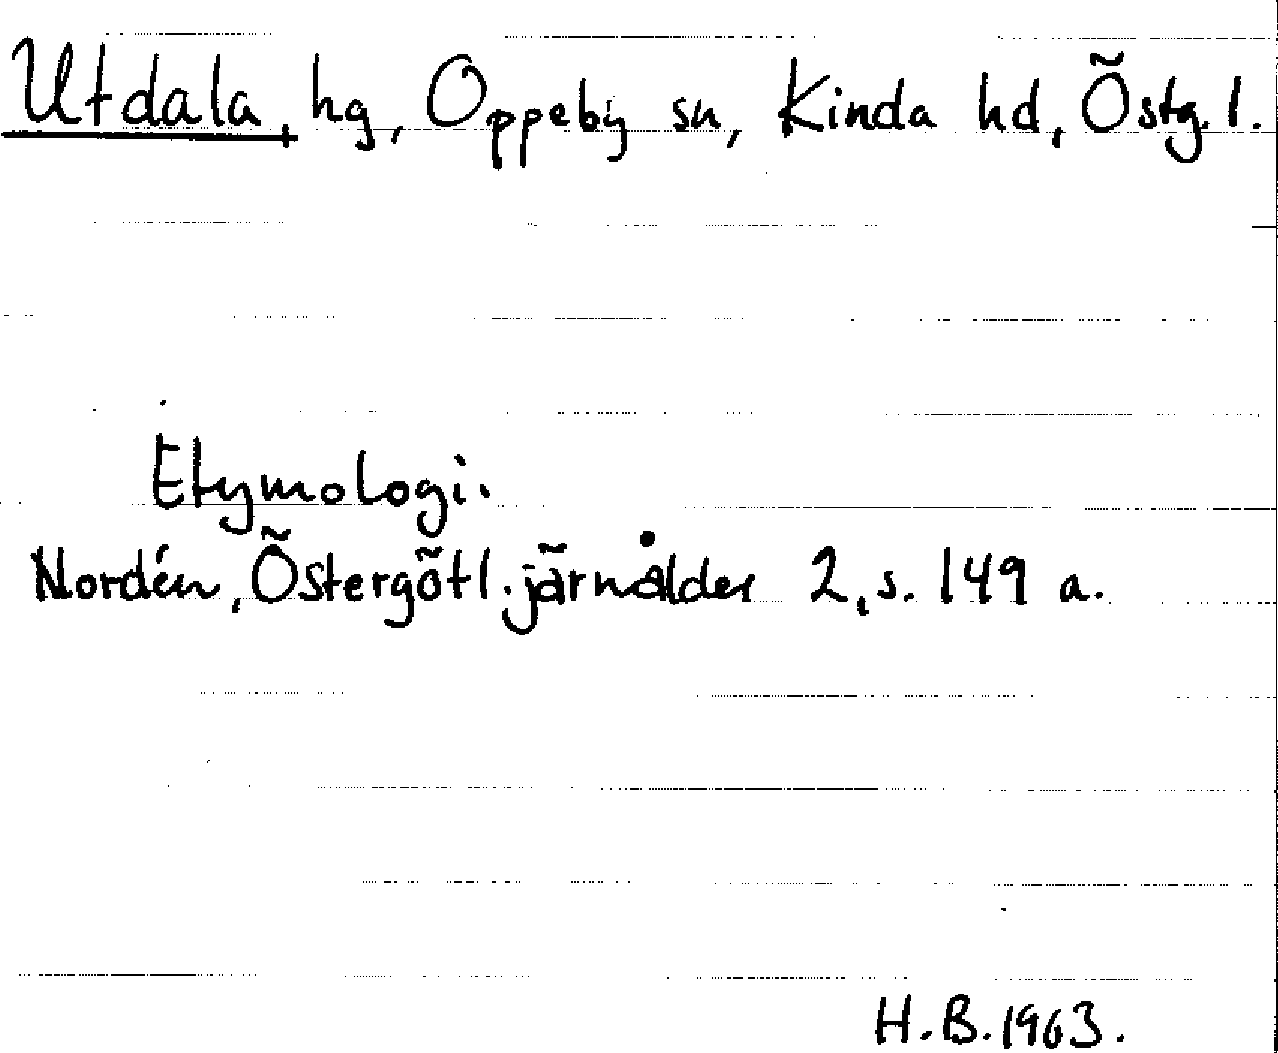 Utdala, hg, Oppeby sn, Kinda hd, Östg.l.
Etymologi.
Nordén, Östergötl. järnålder 2, s. 149 a.
H.B. 1963.